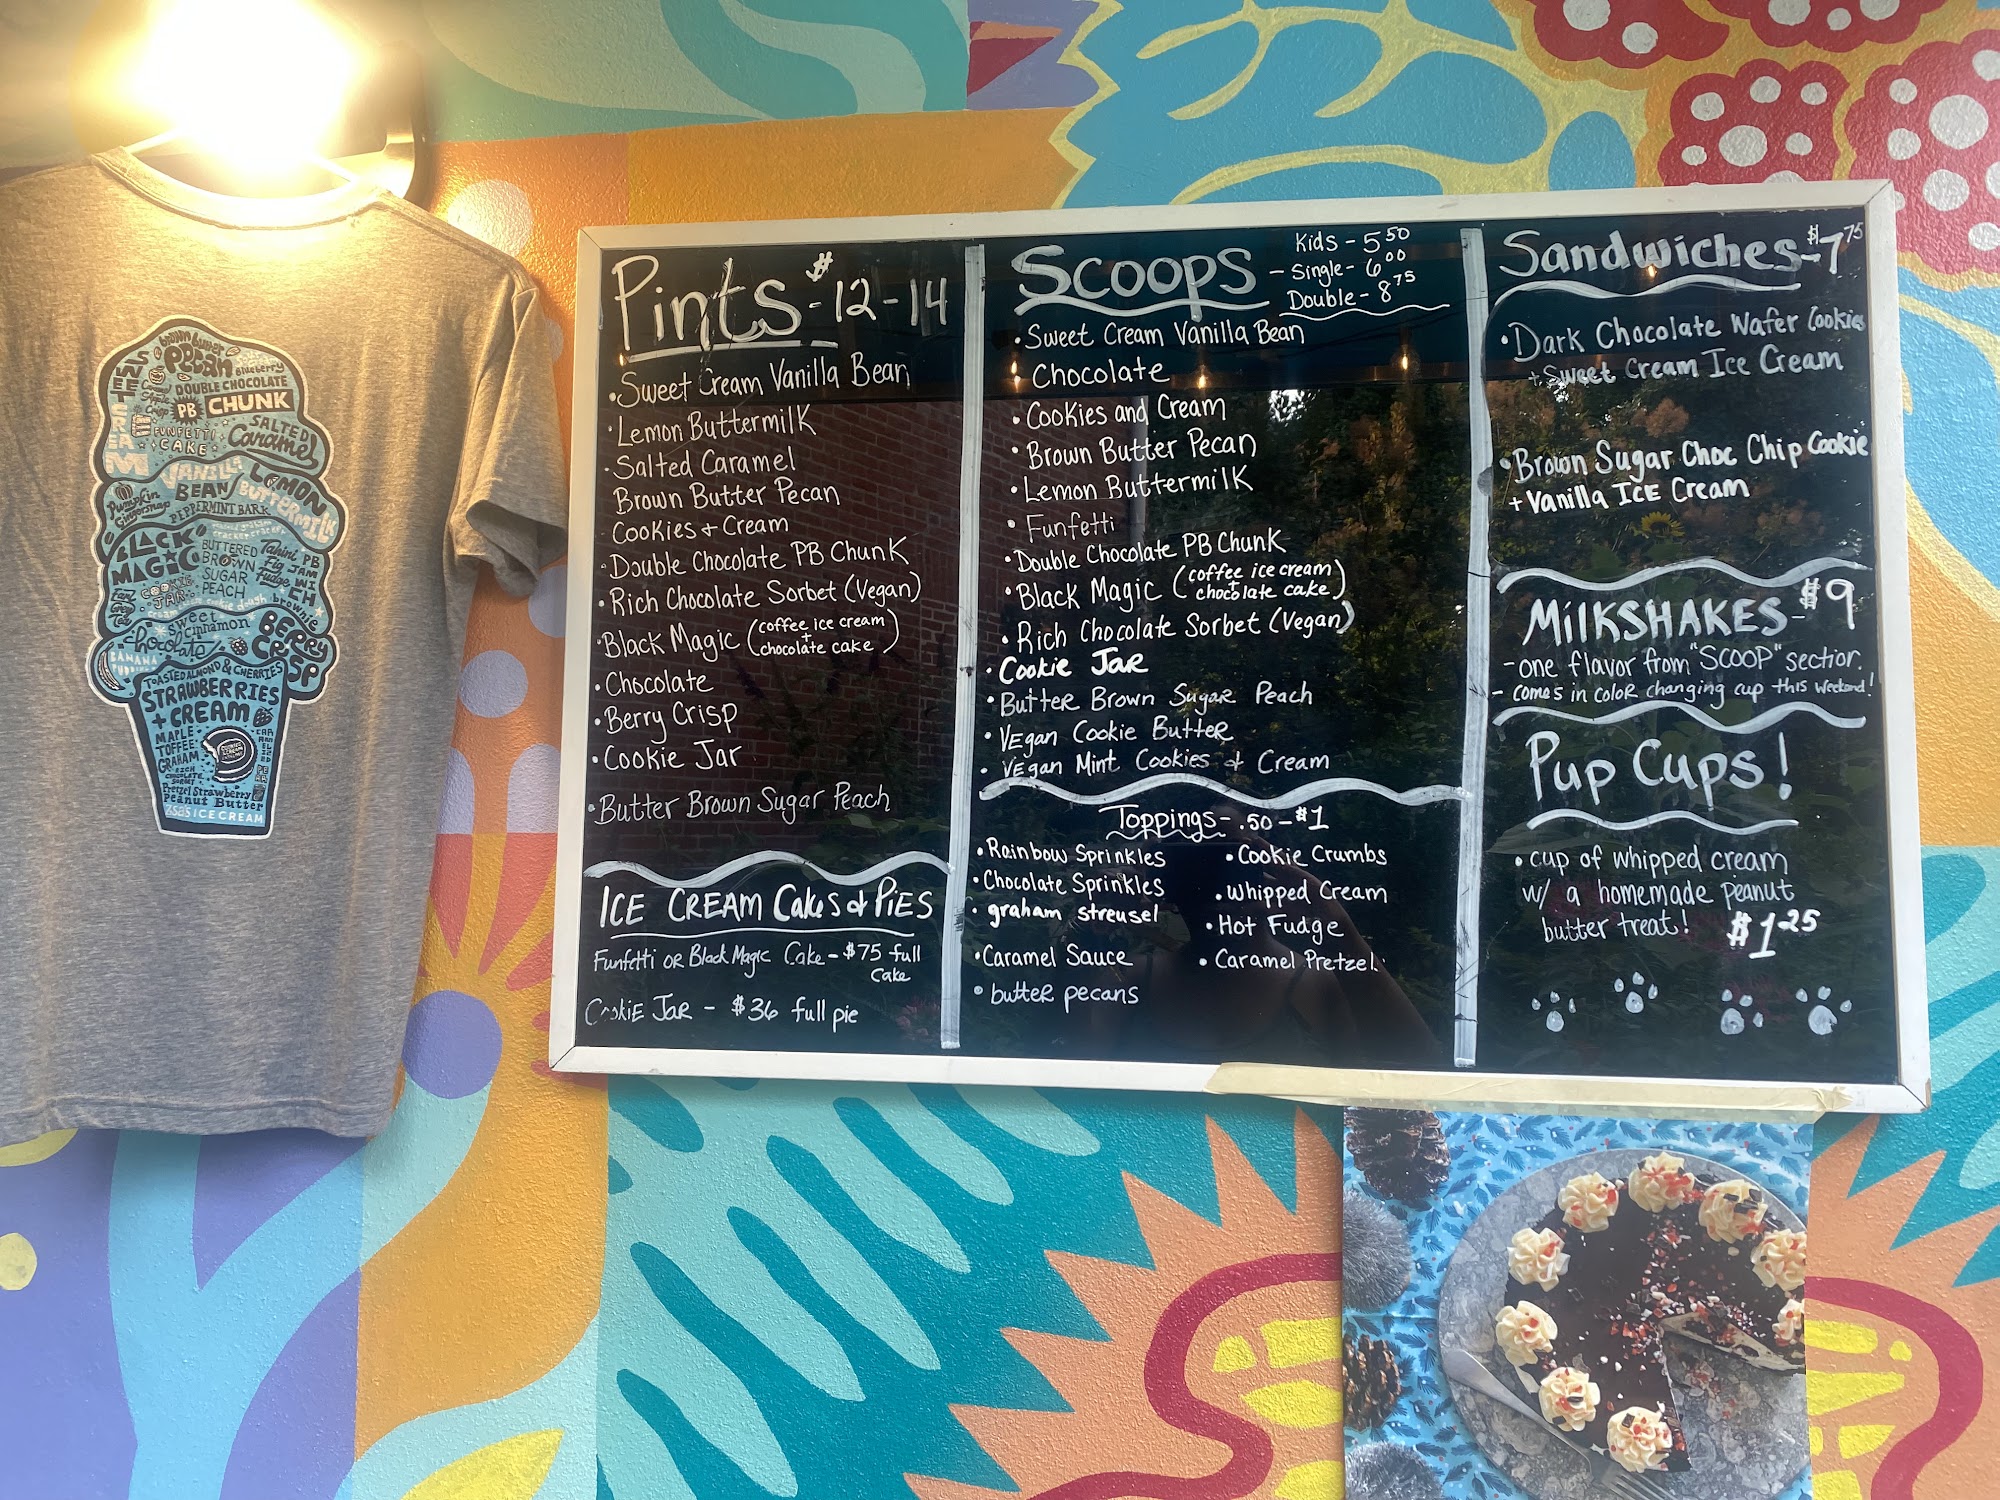 brown butter
Pecan
blueberry
SWEET CREAM
DOUBLE CHOCOLATE
PB CHUNK
FUNFETTI
CAKE
SALTED
Caramel
VANILLA
BEAN
LEMON
BUTTERMILK
Pumpkin
Gingersnap
PEPPERMINT BARK
BLACK
MAGIC
BUTTERED
BROWN
SUGAR
PEACH
Tahini
Fig
Fudge
PB
JAM
WI
CH
Earl
Grey
Tea
COOKIE
JAR
cookie dough
brownie
Chocolate
sweet
cinnamon
BERRY
CRISP
BANANA
PUDDING
TOASTED ALMOND & CHERRIES
STRAWBERRIES
+ CREAM
MAPLE
TOFFEE
GRAHAM
RICH
CHOCOLATE
SORBET
Pretzel Strawberry
Peanut Butter
ICE CREAM
Pints - $12 - 14
• Sweet Cream Vanilla Bean
• Lemon Buttermilk
• Salted Caramel
Brown Butter Pecan
Cookies + Cream
• Double Chocolate PB Chunk
• Rich Chocolate Sorbet (Vegan)
• Black Magic (coffee ice cream + chocolate cake)
• Chocolate
• Berry Crisp
• Cookie Jar
• Butter Brown Sugar Peach
ICE CREAM Cakes & PiES
Funfetti OR Black Magic Cake - $75 full
cake
CookiE JAR - $36 full pie
Scoops
Kids - 5.50
- Single - 6.00
Double - 8.75
• Sweet Cream Vanilla Bean
• Chocolate
• Cookies and Cream
• Brown Butter Pecan
• Lemon Buttermilk
• Funfetti
• Double Chocolate PB Chunk
• Black Magic (coffee ice cream + chocolate cake)
• Rich Chocolate Sorbet (Vegan)
• Cookie Jar
• Butter Brown Sugar Peach
• VEgan Cookie Butter
• VEgan Mint Cookies & Cream
Toppings - .50 - $1
• Rainbow Sprinkles
• Chocolate Sprinkles
• graham streusel
• Caramel Sauce
• butter pecans
• Cookie Crumbs
• Whipped Cream
• Hot Fudge
• Caramel Pretzel
Sandwiches - $7.75
• Dark Chocolate Wafer Cookies
+ Sweet Cream Ice Cream
• Brown Sugar Choc Chip Cookie
+ Vanilla ICE Cream
MilKSHAKES - $9
- one flavor from "SCOOP" section.
- comes in color changing cup this weekend!
Pup Cups!
• cup of whipped cream
w/ a homemade peanut
butter treat! $1.25